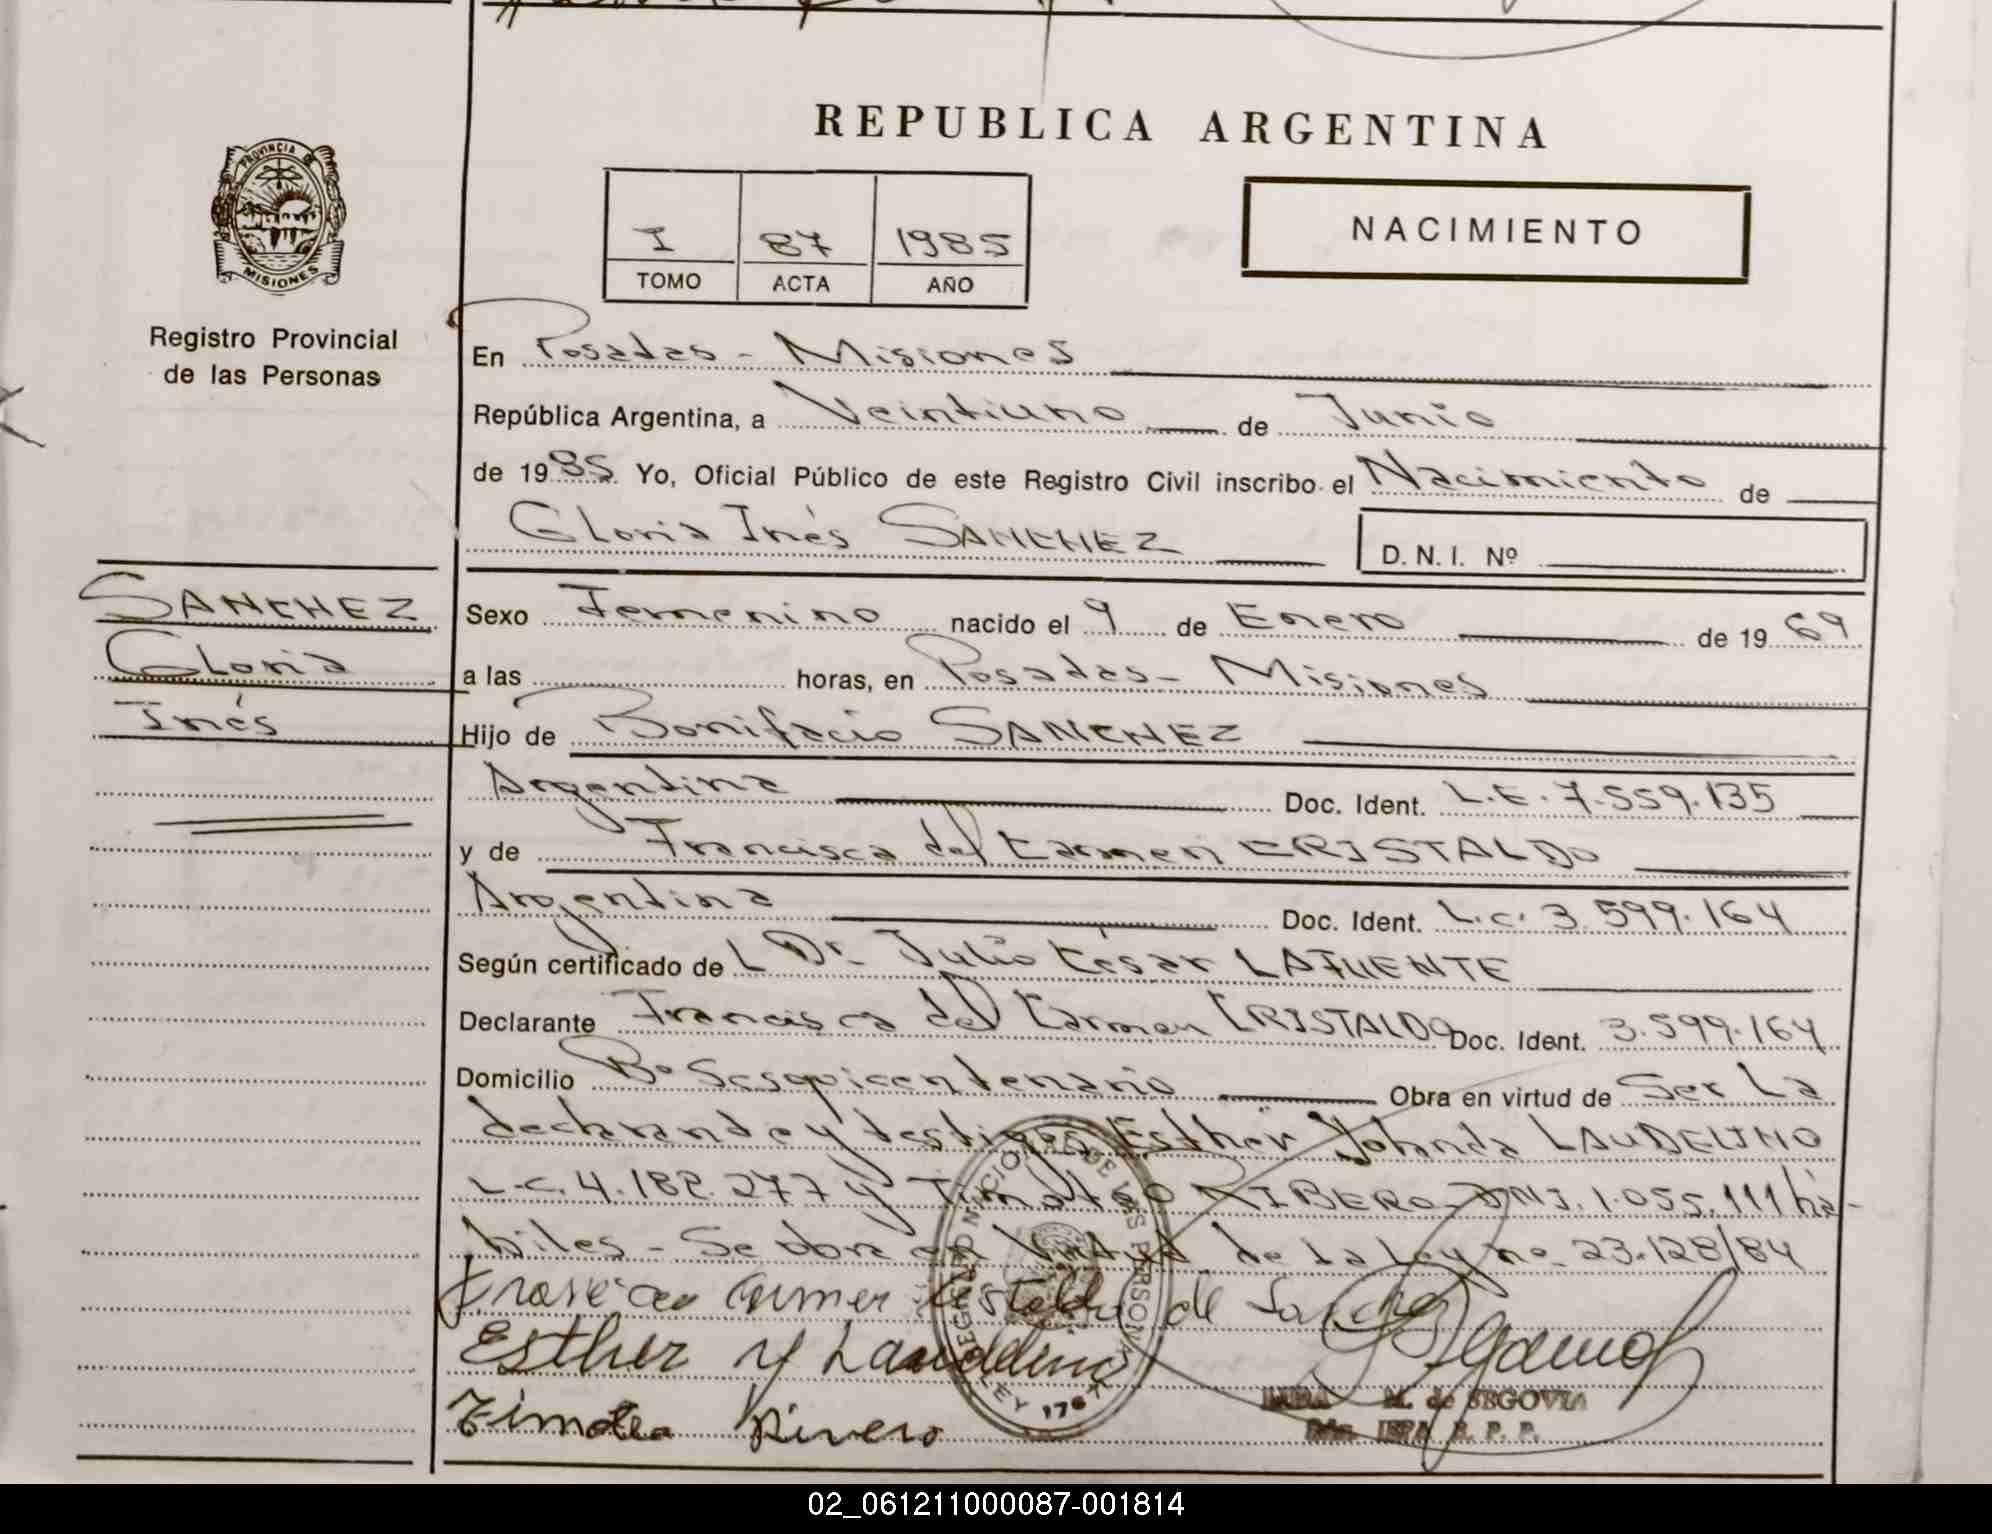 REPUBLICA ARGENTINA
PROVINCIA DE
MISIONES
Registro Provincial
de las Personas
I 87 1985
TOMO ACTA AÑO
NACIMIENTO
En Posadas - Misiones
República Argentina, a Veintiuno de Junio
de 1985 Yo, Oficial Público de este Registro Civil inscribo el Nacimiento de
Gloria Inés SANCHEZ D. N. I. Nº
SANCHEZ
Gloria
Inés
Sexo Femenino nacido el 9 de Enero de 1969
a las horas, en Posadas - Misiones
Hijo de Bonifacio SANCHEZ
Argentina Doc. Ident. L.E. 7.559.135
y de Francisca del Carmen CRISTALDO
Argentina Doc. Ident. L.C. 3.599.164
Según certificado de L Dr. Julio César LAFUENTE
Declarante Francisca del Carmen CRISTALDO Doc. Ident. 3.599.164
Domicilio Bº Sesquicentenario Obra en virtud de Ser La
declarante y testigos Esther Yolanda LAUDELINO
L.C. 4.182.277 y Timoteo RIBERO DNI. 1.055.111 há-
biles - Se obra en Virtud de la Ley nº 23.128/84
Cristaldo de
Esther Y Laudelino
Rivero
M. de SEGOVIA
R. P. P.
02_061211000087-001814